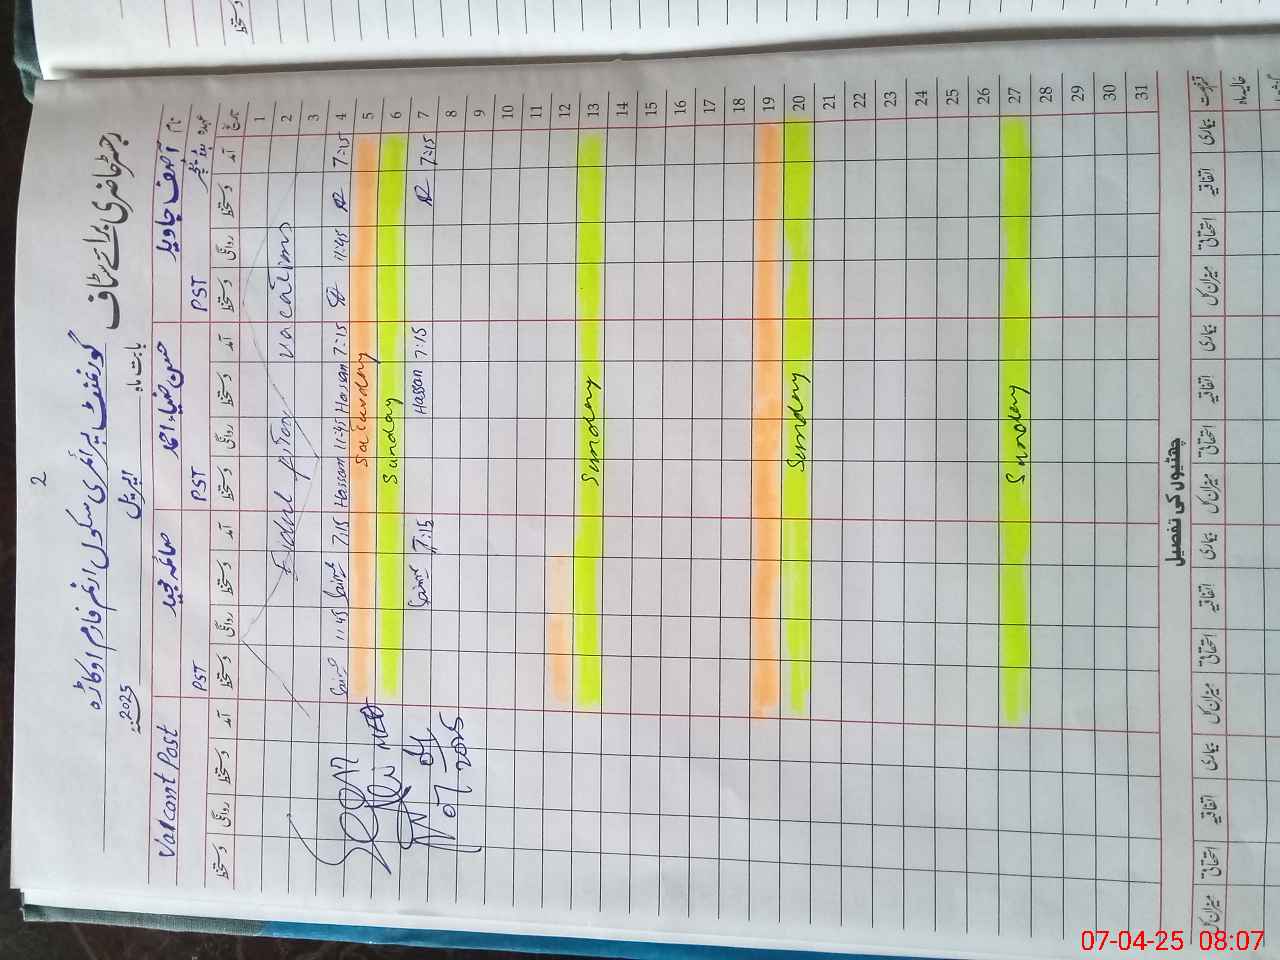 2
رجسٹر حاضری برائے سٹاف
گورنمنٹ پرائمری سکول انعم فارم اوکاڑہ
بابت ماہ اپریل 2025
نام آصف جاوید حسن ضیاء احمد صائمہ مجید Vaicant Post
عہدہ PST PST PST
تاریخ آمد دستخط روانگی دستخط آمد دستخط روانگی دستخط آمد دستخط روانگی دستخط آمد دستخط روانگی دستخط
1
2 vacations
3
4 7:15 11:45 7:15 Hassan 11:45 Hassam 7:15 11:45
5 Saturday
6 Sunday
7 7:15 7:15 Hassan 7:15
8
9
10
11
12
13 Sunday
14
15
16
17
18
19
20 Sunday
21
22
23
24
25
26
27 Sunday
28
29
30
31
Seen
07 04 2025
چھٹیوں کی تفصیل
بیماری اتفاقیہ استحقاقی میزان کل بیماری اتفاقیہ استحقاقی میزان کل بیماری اتفاقیہ استحقاقی میزان کل بیماری اتفاقیہ استحقاقی میزان کل
حالیہ ماہ
07-04-25 08:07